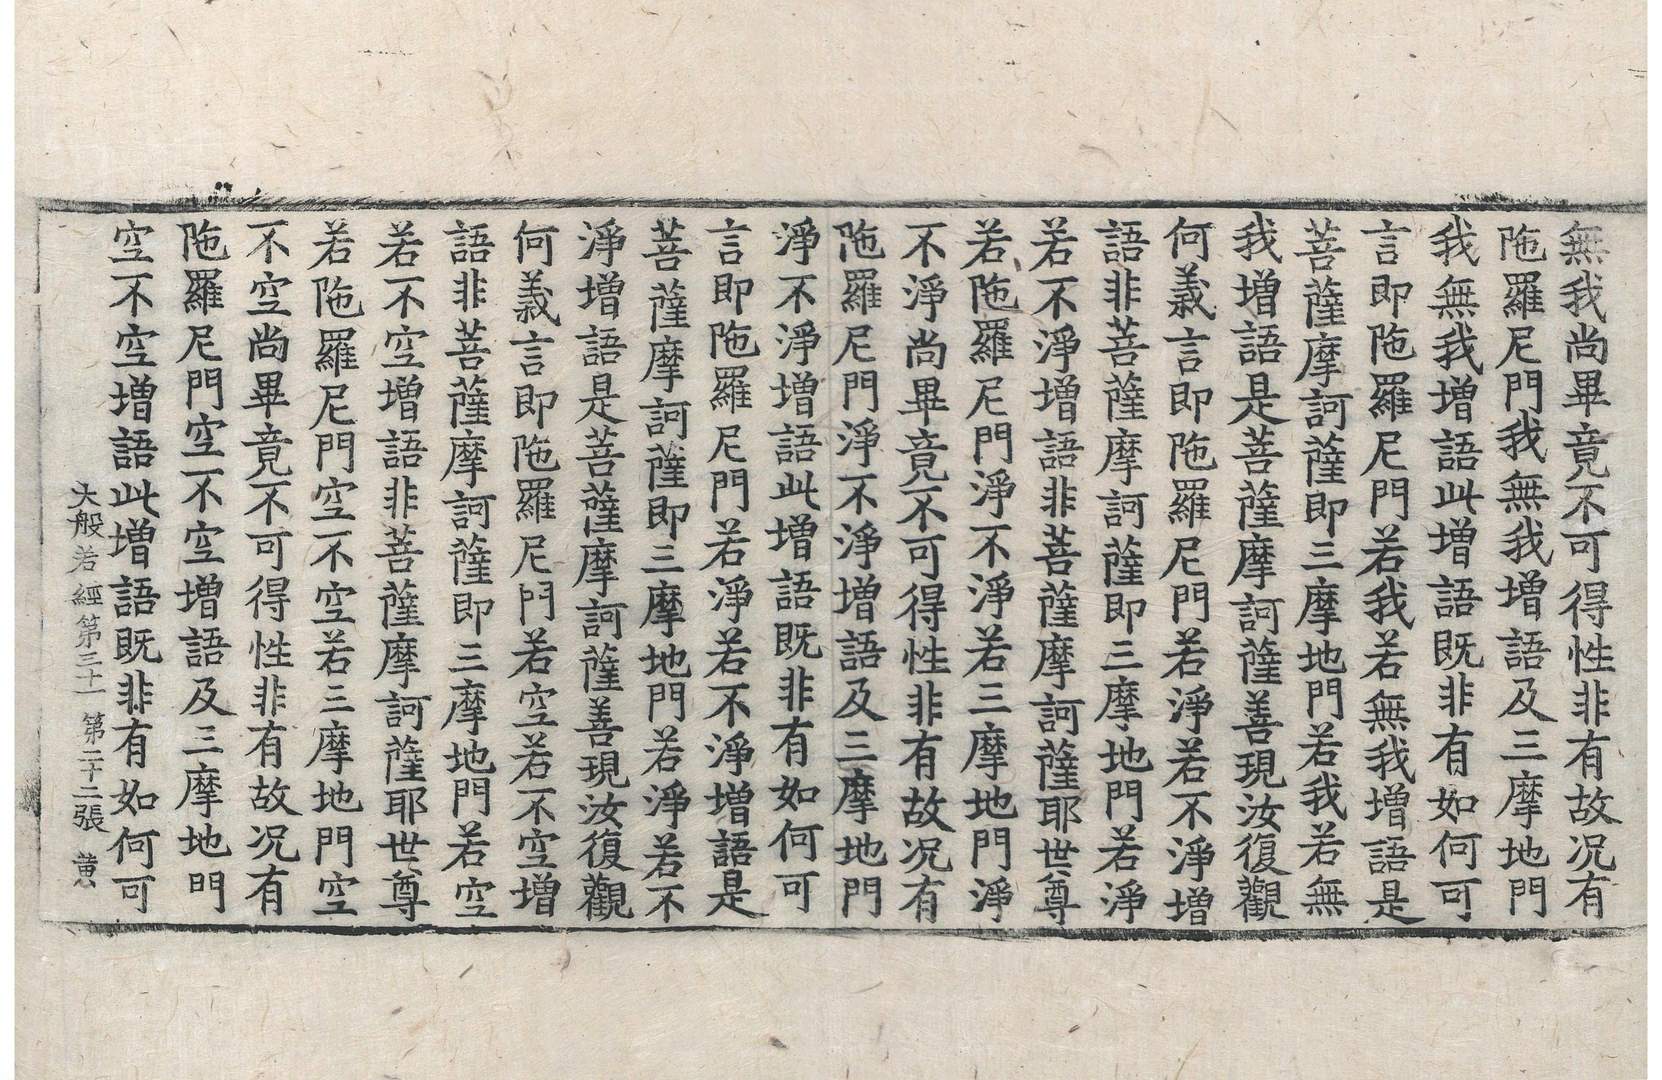 無我尚畢竟不可得性非有故况有
陁羅尼門我無我增語及三摩地門
我無我增語此增語既非有如何可
言即陁羅尼門若我若無我增語是
菩薩摩訶薩即三摩地門若我若無
我增語是菩薩摩訶薩善現汝復觀
何義言即陁羅尼門若淨若不淨增
語非菩薩摩訶薩即三摩地門若淨
若不淨增語非菩薩摩訶薩耶世尊
若陁羅尼門淨不淨若三摩地門淨
不淨尚畢竟不可得性非有故况有
陁羅尼門淨不淨增語及三摩地門
淨不淨增語此增語既非有如何可
言即陁羅尼門若淨若不淨增語是
菩薩摩訶薩即三摩地門若淨若不
淨增語是菩薩摩訶薩善現汝復觀
何義言即陁羅尼門若空若不空增
語非菩薩摩訶薩即三摩地門若空
若不空增語非菩薩摩訶薩耶世尊
若陁羅尼門空不空若三摩地門空
不空尚畢竟不可得性非有故况有
陁羅尼門空不空增語及三摩地門
空不空增語此增語既非有如何可
大般若經第三十一 第二十二張 黃